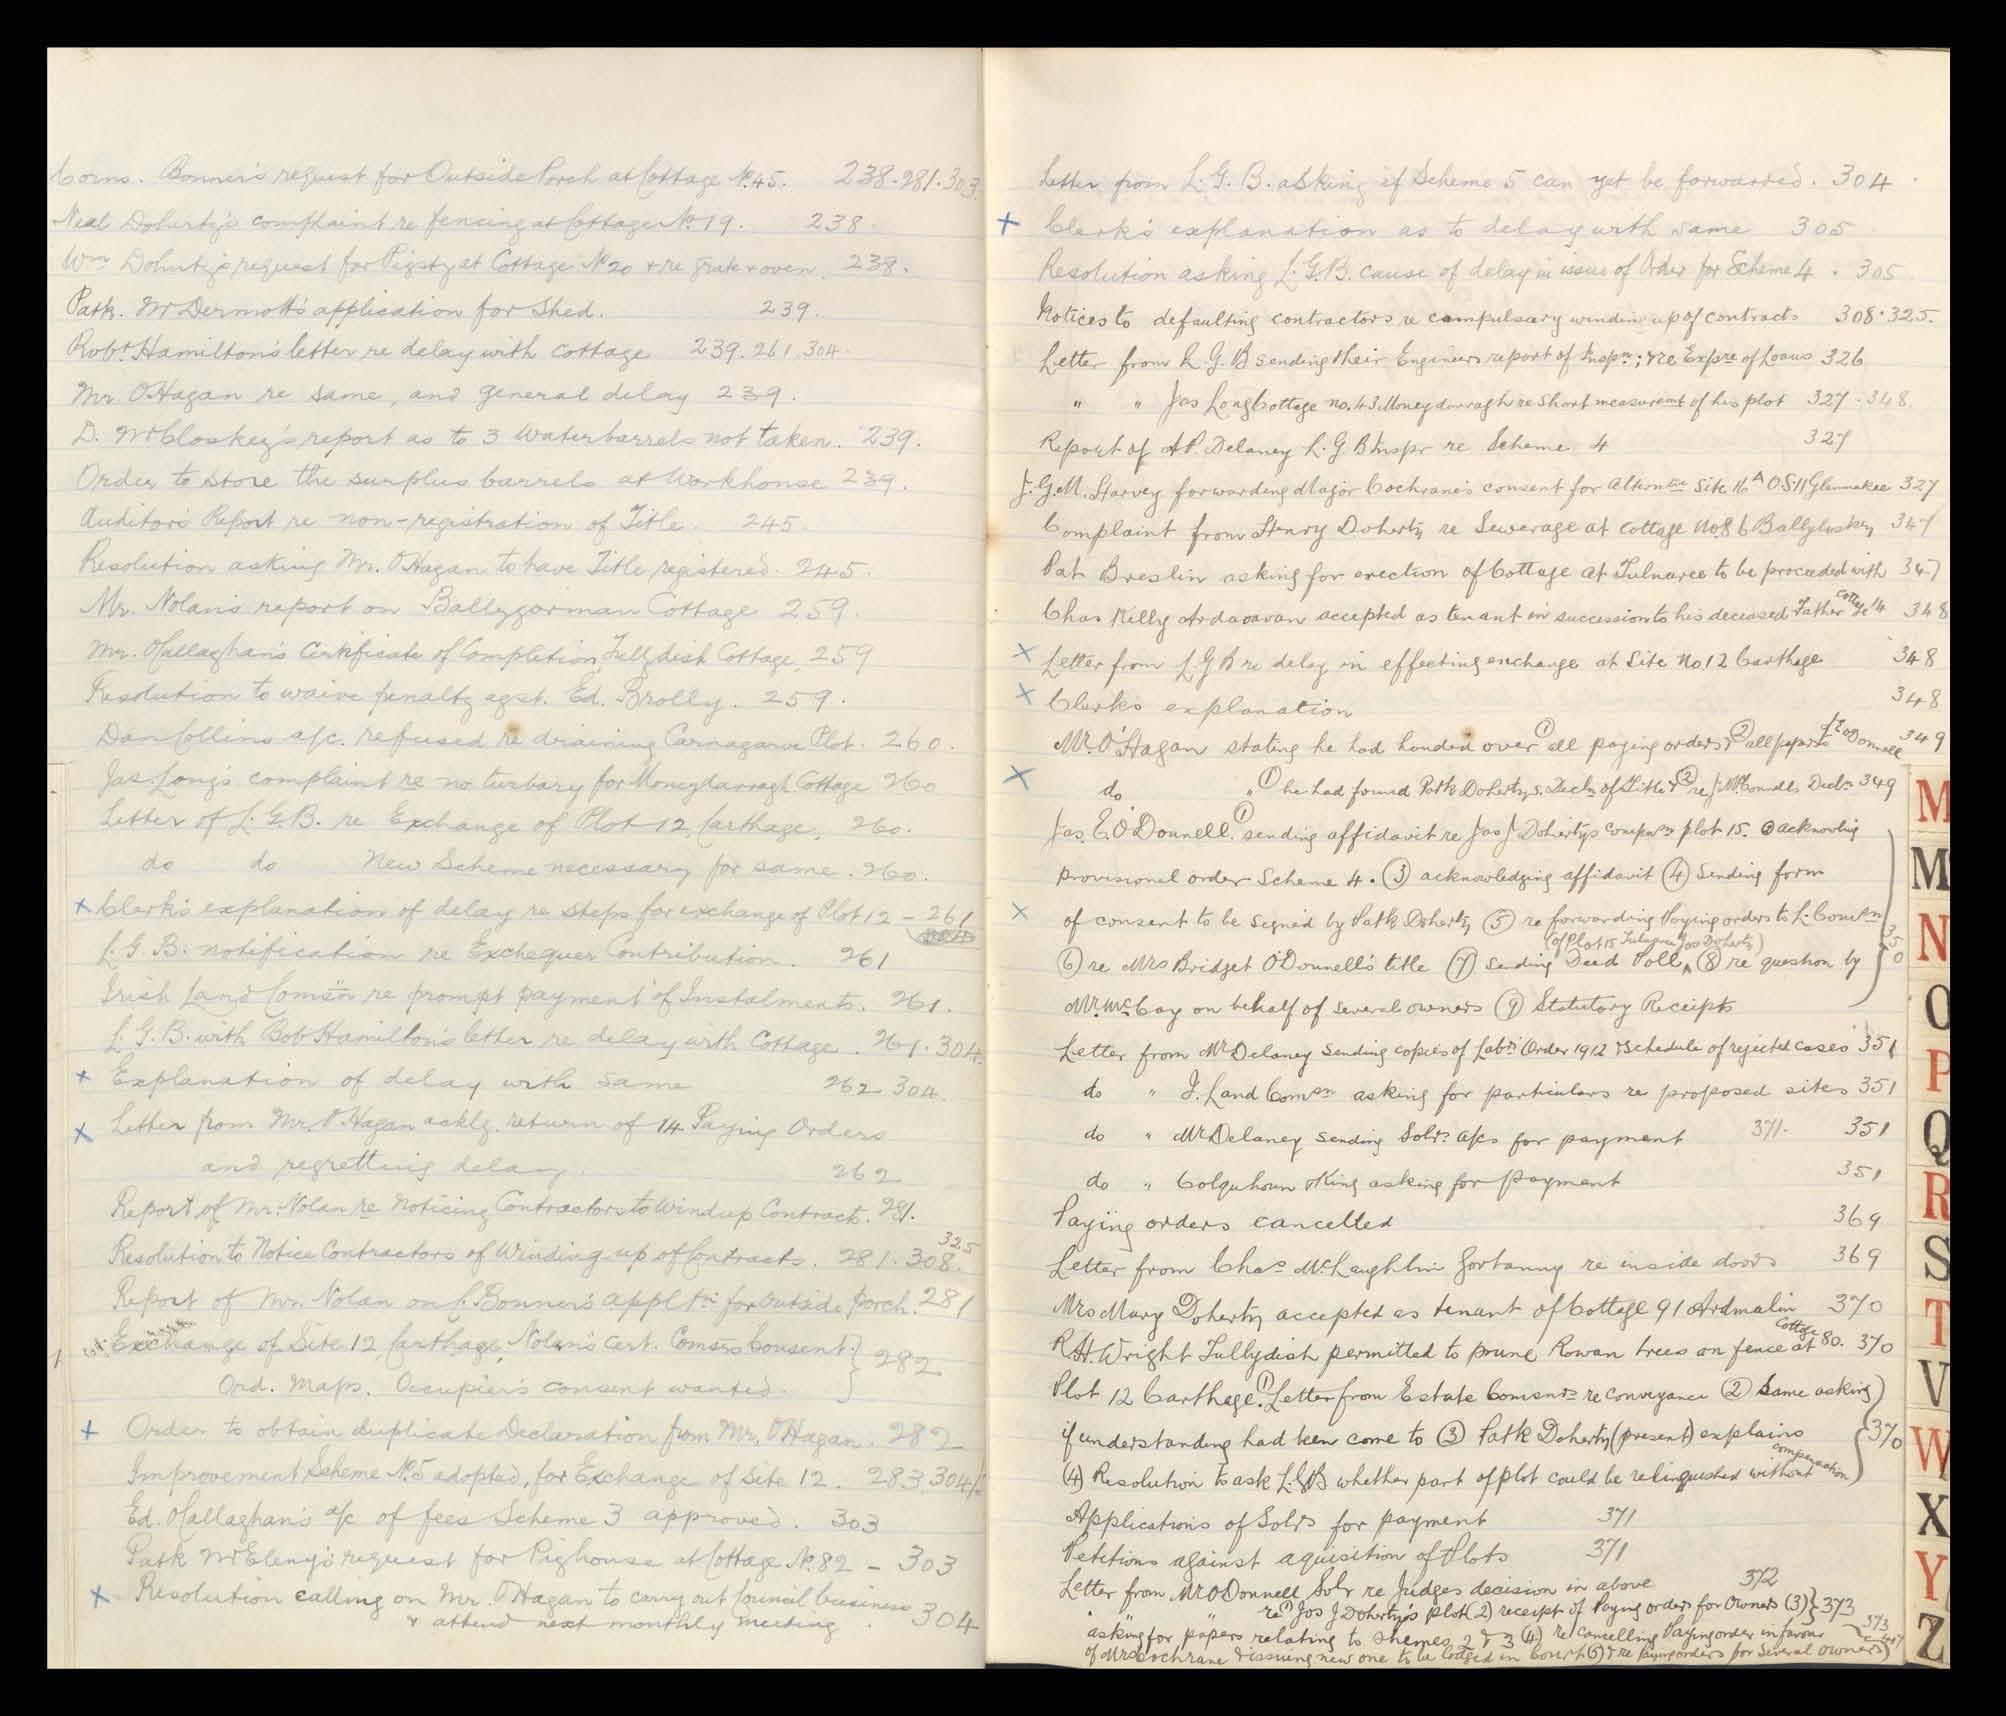 Corns. Bonner's request for Outside Porch at Cottage No. 45. 238. 281. 303.
Neal Doherty's complaint re fencing at Cottage No 19. 238.
Wm Doherty's request for Pigsty at Cottage No 20 & re grate & oven. 238.
Patk. McDermott's application for Shed. 239.
Robt. Hamilton's letter re delay with cottage 239. 261. 304.
Mr. O'Hagan re same, and general delay 239.
D. McCloskey's report as to 3 Waterbarrels not taken. 239.
Order to store the surplus barrels at Workhouse 239.
Auditor's Report re non-registration of Title. 245.
Resolution asking Mr. O'Hagan to have Title registered. 245.
Mr. Nolan's report on Ballygorman Cottage 259.
Mr. O'Callaghan's Certificate of Completion, Tullydish Cottage, 259
Resolution to waive penalty agst. Ed. Brolly. 259.
Dan Collins a/c. refused re draining Carnagarve Plot. 260.
Jas. Long's complaint re no turbary for Moneydarragh Cottage 260
Letter of L.G.B. re Exchange of Plot 12, Carthage, 260.
do do New Scheme necessary for same. 260.
x Clerk's explanation of delay re steps for exchange of Plot 12 - 261
L.G.B. notification re Exchequer Contribution. 261
Irish Land Comsn re prompt payment of Instalments. 261.
L.G.B. with Bob Hamilton's letter re delay with Cottage. 261. 304.
x Explanation of delay with same 262 304.
x Letter from Mr. O'Hagan ackly. return of 14 Paying Orders
and regretting delay. 262
Report of Mr. Nolan re Noticing Contractors to Wind up Contract. 281.
Resolution to Notice Contractors of Winding up of Contracts. 281. 308. 325
Report of Mr. Nolan on C. Bonner's appltn for Outside porch. 281
Exchange of Site 12, Carthage, Nolan's cert. Comsrs Consent. } 282
Ord. Maps. Occupier's consent wanted.
x Order to obtain duplicate Declaration from Mr. O'Hagan. 282
Improvement Scheme No. 5 adopted, for Exchange of Site 12. 283. 304
Ed. O'Callaghan's a/c of fees Scheme 3 approved. 303
Patk McEleny's request for Pighouse at Cottage No. 82 - 303
x Resolution calling on Mr. O'Hagan to carry out Council business
& attend next monthly meeting. 304
Letter from L.G.B. asking if Scheme 5 can yet be forwarded. 304
x Clerk's explanation as to delay with same 305
Resolution asking L.G.B. cause of delay in issue of Order for Scheme 4. 305
Notices to defaulting contractors re compulsary winding up of contracts 308. 325.
Letter from L.G.B sending their Engineers report of Inspn; & re Expre of Loans 326
" " Jas Long Cottage no. 43 Moneydarragh re Short measuremt of his plot 327. 348.
Report of A.P. Delaney L.G.B Inspr re Scheme 4 327
J.G.M. Harvey forwarding Major Cochrane's consent for Alterntve Site 16A O.S. 11 Glenmakee 327
Complaint from Henry Doherty re Sewerage at Cottage No. 86 Ballyloskey 347
Pat Breslin asking for erection of Cottage at Tulnaree to be proceeded with 347
Chas Kelly Ardaravan accepted as tenant in succession to his deceased Father Cottage 14 348
x Letter from L.G.B re delay in effecting exchange at Site No. 12 Carthage 348
x Clerks explanation 348
Mr. O'Hagan stating he had handed over (1) all paying orders, & (2) all papers J E O'Donnell 349
x do " (1) he had found Patk Doherty's Decln of Title & (2) re J. McConnell's Decln 349
Jas. E. O'Donnell. (1) sending affidavit re Jas J Dohertys compn plot 15. (2) acknowling
provisional order Scheme 4. (3) acknowledging affidavit (4) Sending form
x of consent to be signed by Patk Doherty (5) re forwarding Paying orders to L. Commn
(of Plot 15 Tulnaree Jas Doherty)
(6) re Mrs Bridget O'Donnell's title (7) sending Deed Poll, (8) re question by } 350
Mr. McCay on behalf of several owners (9) Statutory Receipts
Letter from Mr Delaney sending copies of Labrs Order 1912 & Schedule of rejected cases 351
do " I. Land Comsn asking for particulars re proposed sites 351
do " Mr Delaney sending Solrs a/cs for payment 371. 351
do " Colquhoun & King asking for payment 351
Paying orders cancelled 369
Letter from Chas McLaughlin Gortanny re inside doors 369
Mrs Mary Doherty accepted as tenant of Cottage 91 Ardmalin 370
R.H. Wright Tullydish permitted to prune Rowan trees on fence at Cottage 80. 370
Plot 12 Carthage. (1) Letter from Estate Comsnrs re conveyance (2) Same asking
if understanding had been come to (3) Patk Doherty (present) explains } 370
(4) Resolution to ask L.G.B whether part of plot could be relinquished without compensation
Applications of Solrs for payment 371
Petitions against aquisition of Plots 371
Letter from Mr O'Donnell Solr re Judges decision in above 372
re (1) Jos J Doherty's plot (2) receipt of Paying orders for Owners (3) } 373
asking for papers relating to Shemes 2 & 3 (4) re cancelling Paying order in favour 373
of Mrs Cochrane & issuing new one to be lodged in Court (5) & re Paying orders for Several Owners
M
M
N
O
P
Q
R
S
T
V
W
X
Y
Z